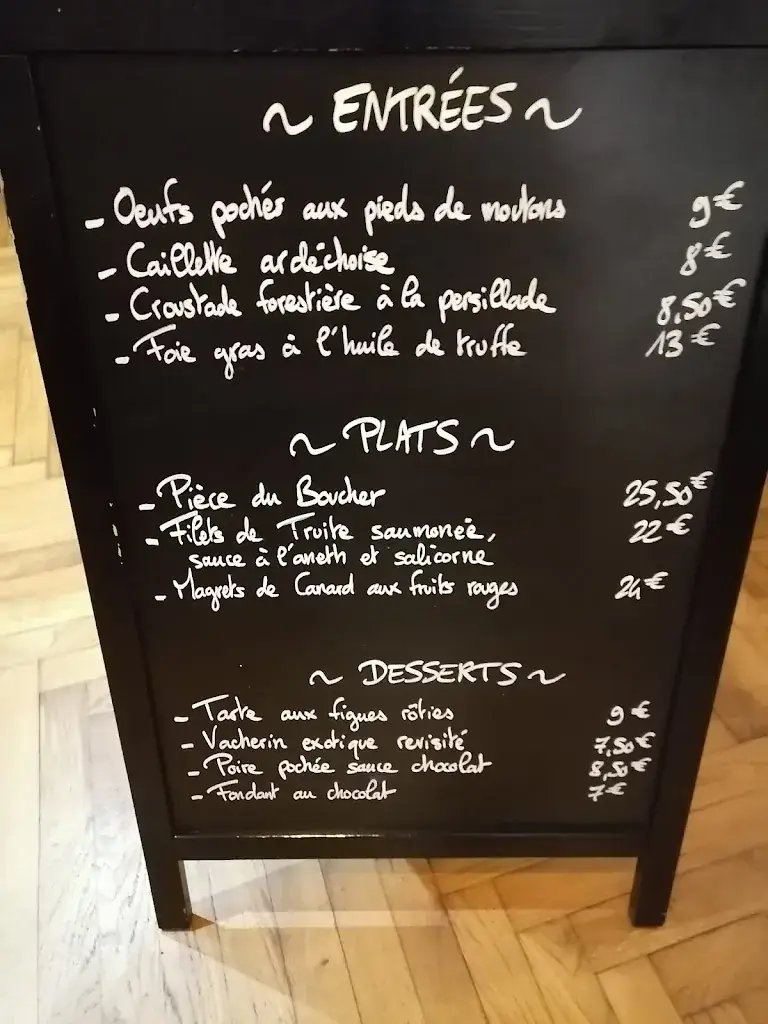 ~ ENTRÉES ~
- Oeufs pochés aux pieds de moutons 9€
- Caillette ardéchoise 8€
- Croustade forestière à la persillade 8,50€
- Foie gras à l'huile de truffe 13€
~ PLATS ~
- Pièce du Boucher 25,50€
- Filets de Truite saumonée, 22€
sauce à l'aneth et salicorne
- Magrets de Canard aux fruits rouges 24€
~ DESSERTS ~
- Tarte aux figues rôties 9€
- Vacherin exotique revisité 7,50€
- Poire pochée sauce chocolat 8,50€
- Fondant au chocolat 7€